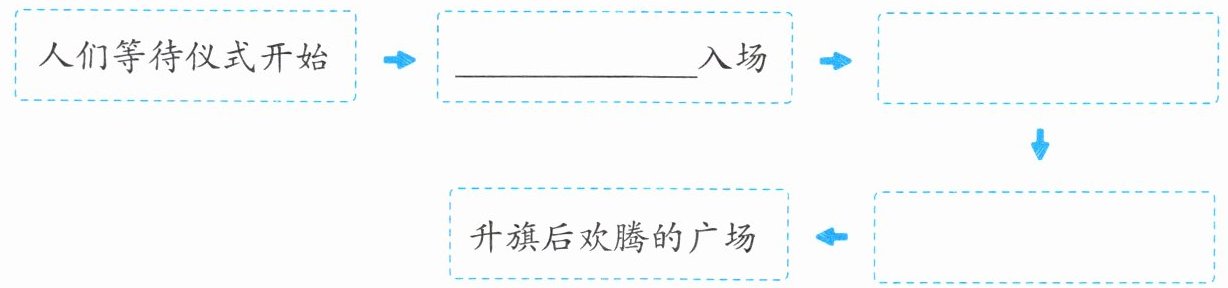 人们等待仪式开始
入场
升旗后欢腾的广场